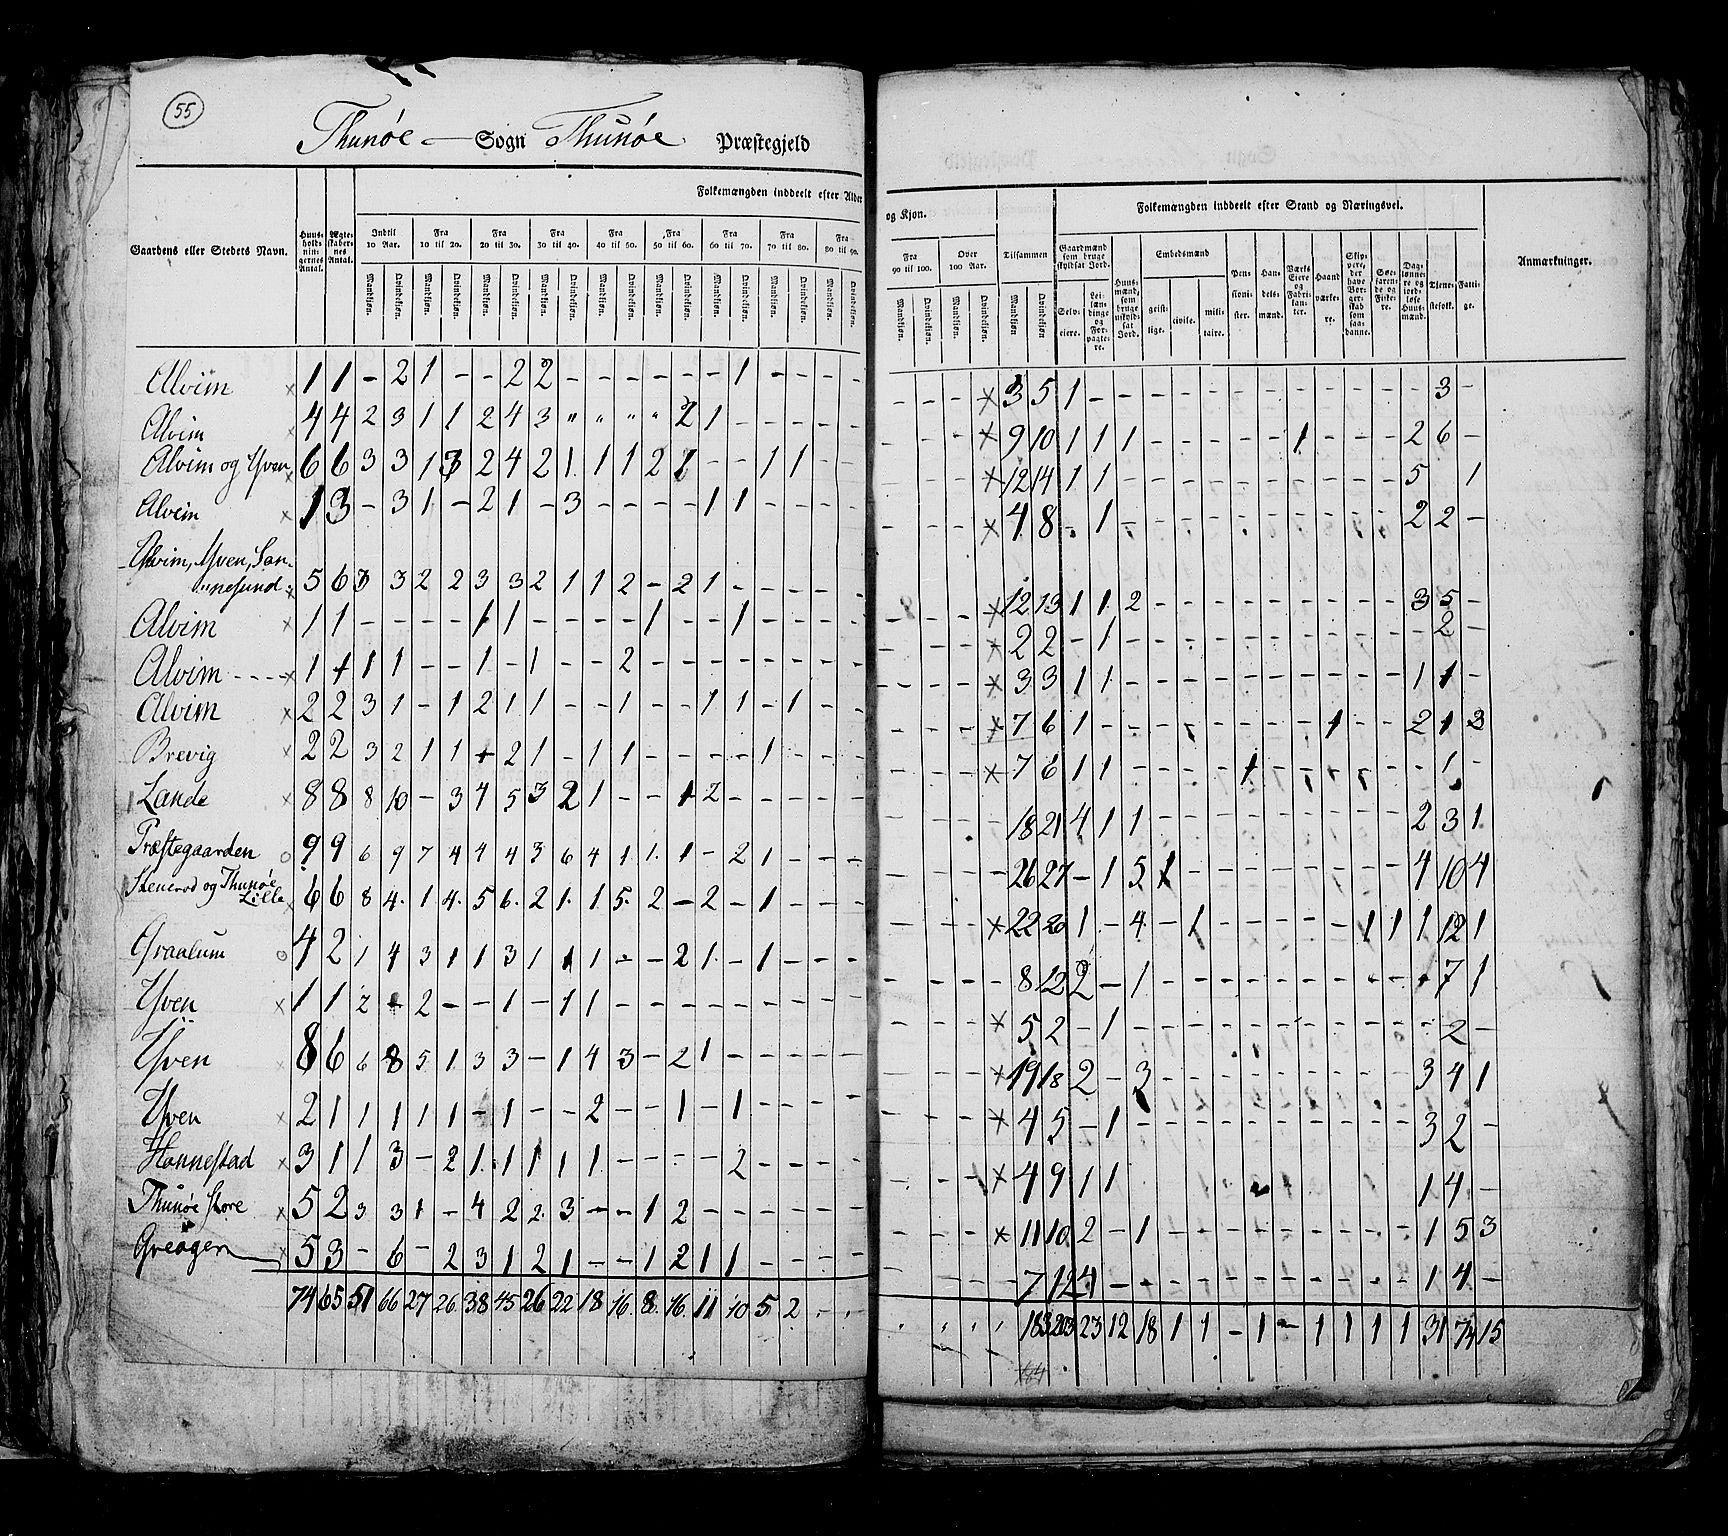 55
Thunøe — Sogn Thunøe Præstegjeld
Folkemængden inddeelt efter Alder og Kjøn.
Folkemængden inddeelt efter Stand og Næringsvei.
Gaardens eller Stedets Navn.
Huus-holdningernes Antal.
Ægteskabernes Antal.
Indtil 10 Aar.
Fra 10 til 20.
Fra 20 til 30.
Fra 30 til 40.
Fra 40 til 50.
Fra 50 til 60.
Fra 60 til 70.
Fra 70 til 80.
Fra 80 til 90.
Fra 90 til 100.
Over 100 Aar.
Tilsammen
Mandkjøn. Qvindekjøn.
Gaardmænd som bruge skyldsat Jord.
Selveiere.
Leilændinge og Forpagtere.
Huusmænd, som bruge uskyldsat Jord.
Embedsmænd
geistlige. civile. militaire.
Pensionister.
Handelsmænd.
Værks Eiere og Fabrikanter.
Haandværkere.
Skippere, der have Borgerskab som saadanne.
Søefarende og Fiskere.
Daglønnere og jordløse Huusmænd.
Tjenestefolk.
Fattige.
Anmærkninger.
Alvim × 1 1 - 2 1 - - 2 2 - - - - - - 1 - - - - - - - - × 3 5 1 - - - - - - - - - - - - 3 -
Alvim × 4 4 2 3 1 1 2 4 3 " " " " 2 1 - - - - - - - - × 9 10 1 1 1 - - - - - 1 - - - 2 6 -
Alvim og Yven × 6 6 3 3 1 3 2 4 2 1 1 1 2 1 - - 1 1 - - - - - - × 12 14 1 1 - - - - - - - - - - 5 1
Alvim × 1 3 - 3 1 - 2 1 - 3 - - - - 1 1 - - - - - - - - × 4 8 - 1 - - - - - - - - - - 2 2 -
Alvim, Yven, Sannesund × 5 6 3 3 2 2 3 3 2 1 1 2 - 2 1 - - - - - - - × 12 13 1 1 2 - - - - - - - - - 3 5 -
Alvim × 1 1 - - - - 1 1 - - - - 1 - - 1 - - - - - - - × 2 2 - 1 - - - - - - - - - - 2 -
Alvim × 1 1 1 1 - - 1 - 1 - - 2 - - - - - - - - - - × 3 3 1 1 - - - - - - - - - - 1 1 -
Alvim × 2 2 3 1 - 1 2 1 1 - - 1 - - 1 1 - 1 - - - - - × 7 6 1 - - - - - - - - 1 - - 2 1 3
Brevig × 2 2 3 2 1 1 1 2 1 - 1 1 - - - - 1 - - - - - - × 7 6 1 1 - - - - 1 - - - - - - 1 -
Lande × 8 8 8 10 - 3 4 5 3 2 1 - - 1 2 - - - - - - - - 18 21 4 1 1 - - - - - - - - - 2 3 1
Præstegaarden o 9 9 6 9 7 4 4 4 3 6 4 1 1 1 - 2 1 - - - - - - - 26 27 - 1 5 1 - - - - - - - - 4 10 4
Stenerod og Thunøe Lille × 6 6 8 4 1 4 5 6 2 1 1 5 2 - 2 - 1 - - - - - - - × 22 20 1 - 4 - 1 - - - - - 1 1 1 12 1
Graalum o 4 2 1 4 3 1 1 3 1 1 1 - - 2 1 - 1 - - - - - - - 8 12 2 - 1 - - - - - - - - - - 7 1
Yven × 1 1 2 - 2 - - 1 - 1 1 - - - - - - - - - - - - × 5 2 - 1 - - - - - - - - - - 2 -
Yven × 8 6 6 8 5 1 3 3 - 1 4 3 - 2 1 - - - - - - - - × 19 18 2 - 3 - - - - - - - - - 3 4 1
Yven × 2 1 1 1 1 1 - 1 - - 2 - - 1 - 1 - - - - - - - × 4 5 - 1 - - - - - - - - - - 3 2 -
Hannestad × 3 1 1 3 - 2 1 1 1 1 1 - - - - 2 - - - - - - - × 4 9 1 1 1 4 -
Thunøe Store × 5 2 3 3 1 - 4 2 2 3 - - 1 2 - - - - - - - - - × 11 10 2 - 1 - - - - - - - - - 1 5 3
Greåger × 5 3 - 6 - 2 3 1 2 1 - - 1 2 1 1 - - - - - - - - 7 12 4 - - - - - - - - - - - 1 4 -
74 65 51 66 27 26 38 45 26 22 18 16 8 16 11 10 5 2 - - 183 203 23 12 18 1 1 - 1 - 1 1 1 1 31 74 15